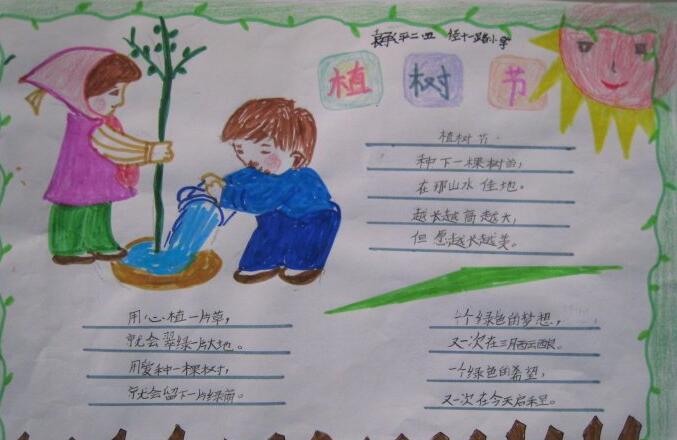 二四 经十一路小学
植树节
植树节
种下一棵树苗,
在那山水佳地。
越长越高越大,
但愿越长越美。
用心植一片草,
就会翠绿一片大地。
用爱种一棵树,
就会留下一片绿荫。
一个绿色的梦想,
又一次在三月
一个绿色的希望,
又一次在今天启